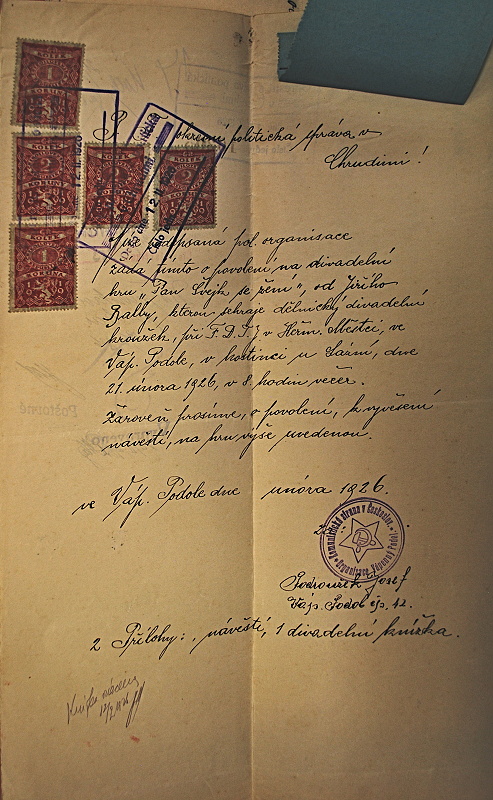 KOLEK
1
KORUNA
KOLEK
2
KORUNY
KOLEK
2
KORUNY
KOLEK
2
KORUNY
KOLEK
1
KORUNA
12 II. 1926
okresní politická správa v
Chrudimi!
Níže podepsaná pol. organisace
žádá tímto o povolení, na divadelní
hru „Pan Švejk se žení", od Jiřího
Balby, kterou sehraje dělnický divadelní
kroužek, při F.D.T.J. v Heřm. Městci, ve
Váp. Podole, v hostinci u Lázní, dne
21. února 1926, v 8. hodin večer.
Zároveň prosíme, o povolení, k vyvěšení
návěstí, na hru výše uvedenou.
ve Váp. Podole dne února 1926.
Komunistická strana v Českoslov.
Organizace Vápenný Podol
Podroužek Josef
Váp. Podol čp. 42.
2 Přílohy: návěstí, 1 divadelní knížka.